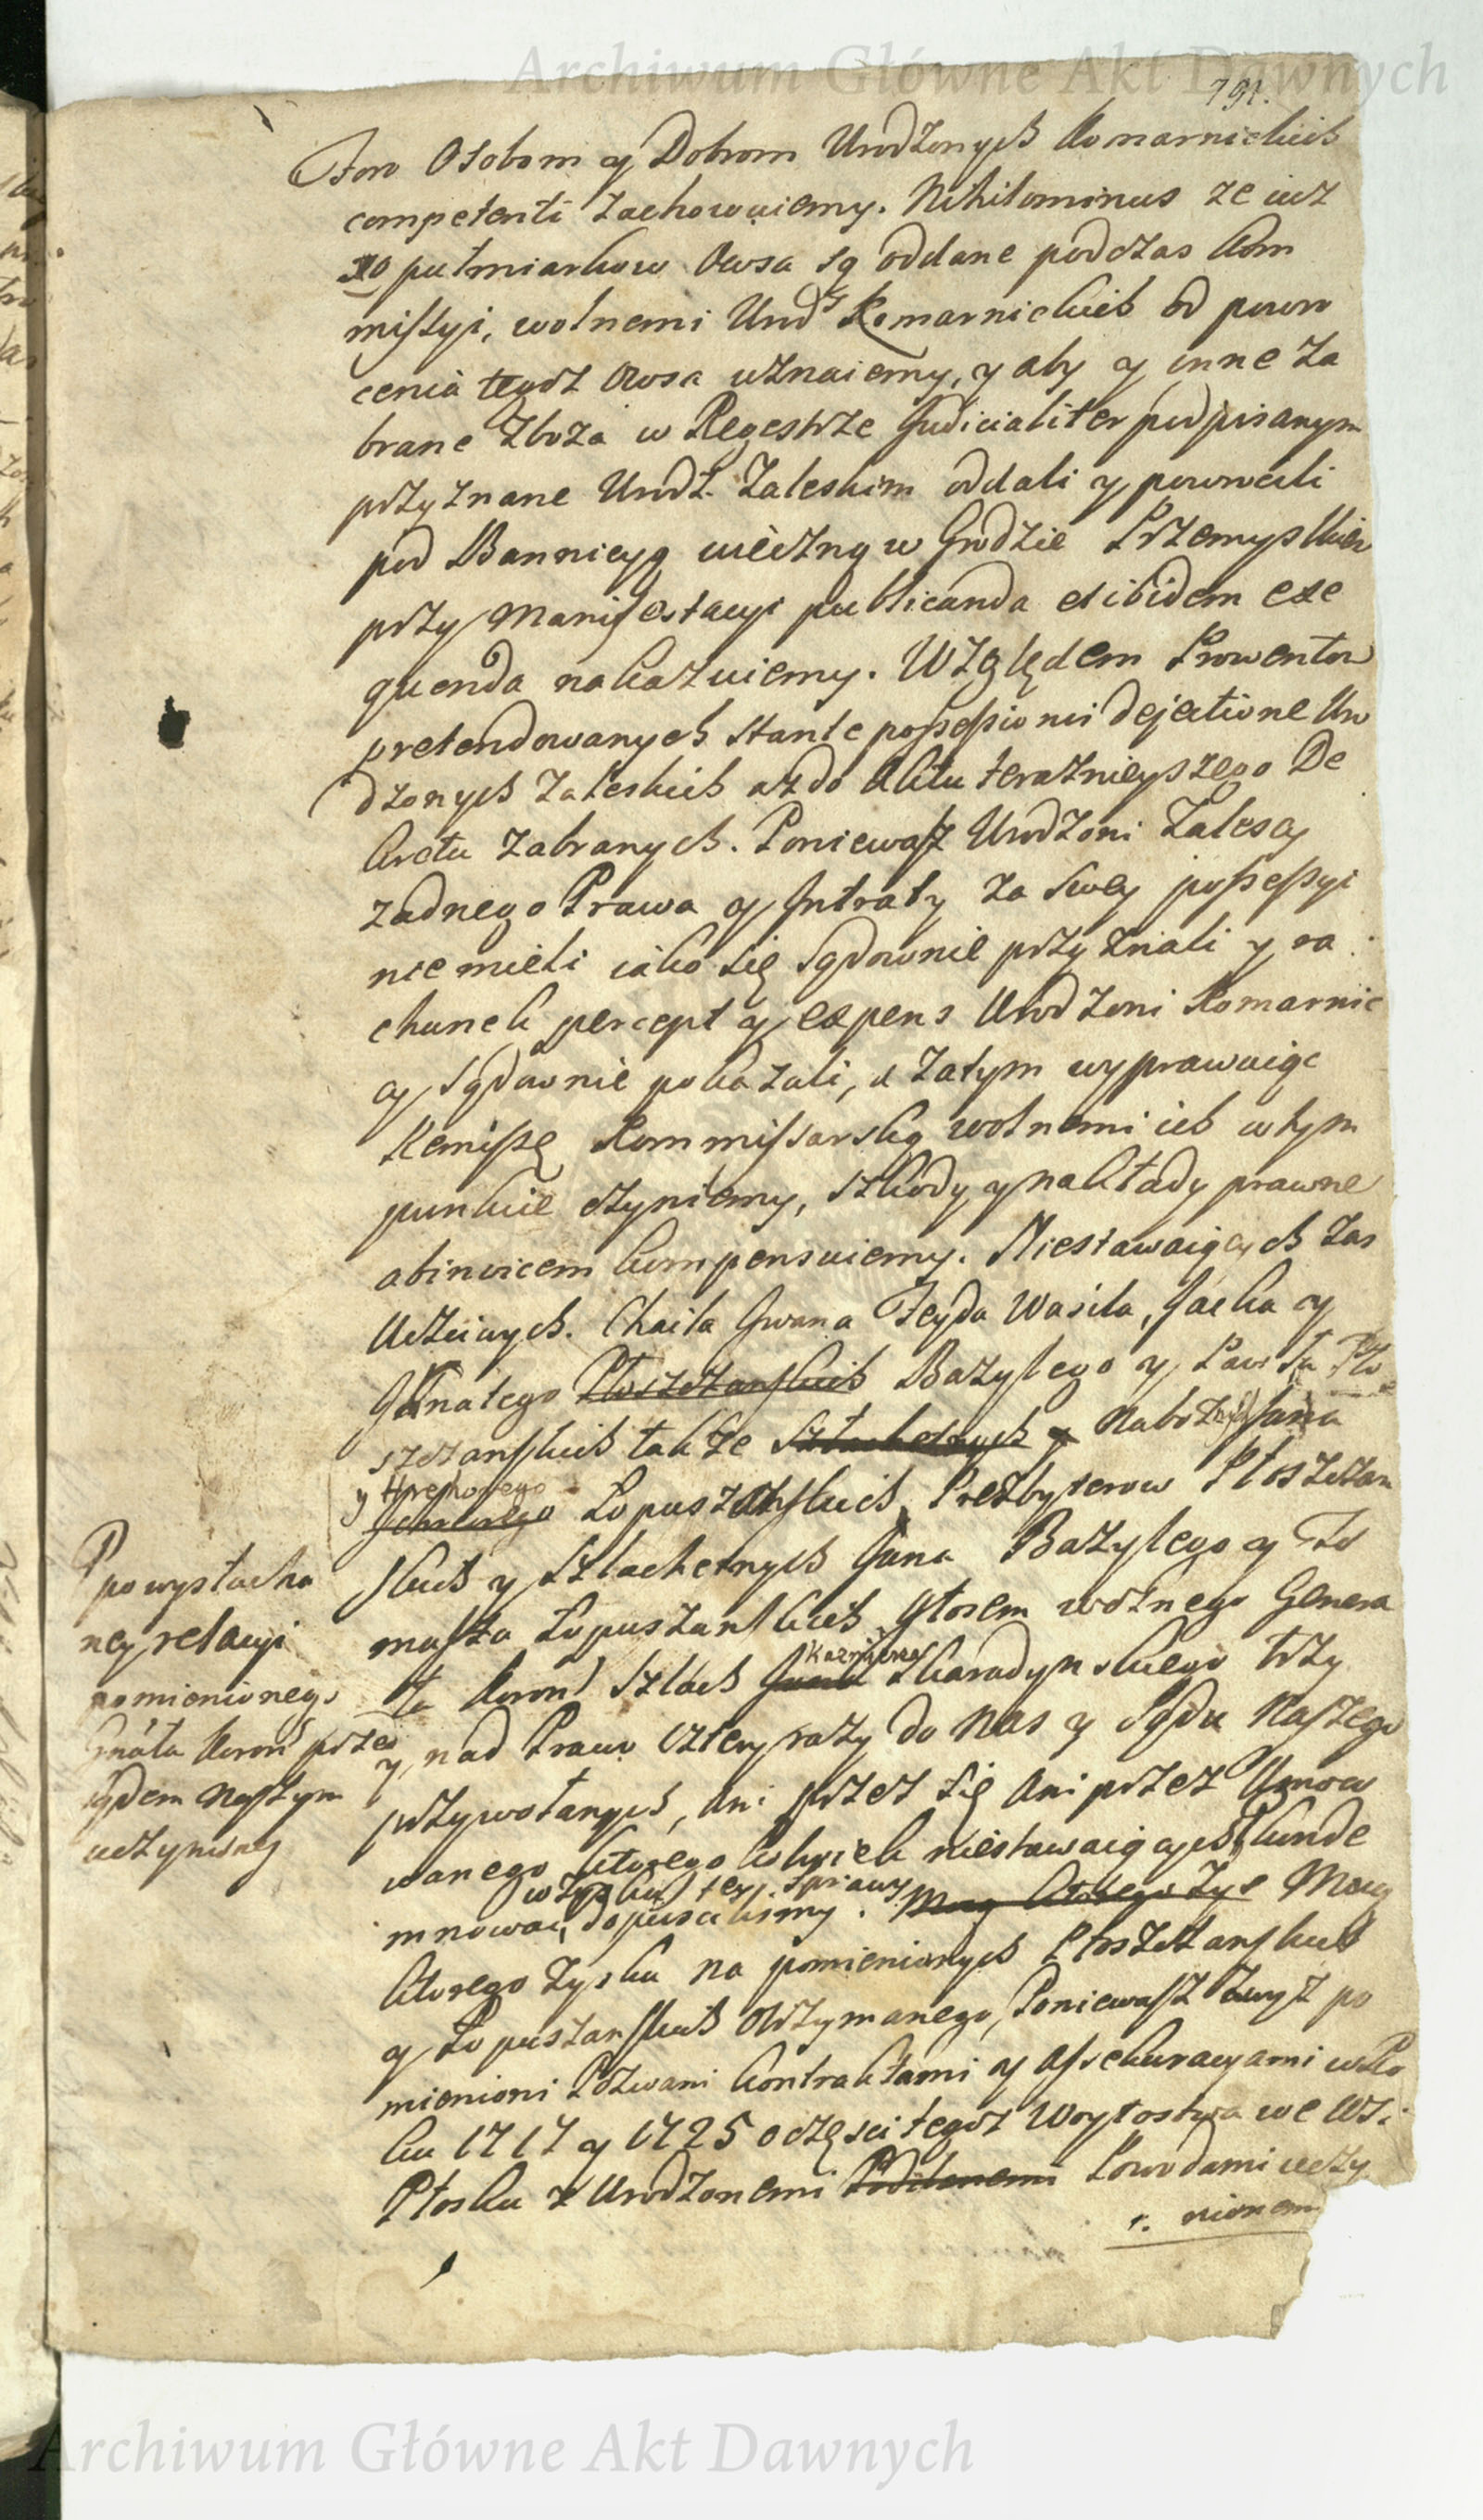 Archiwum Główne Akt Dawnych
791.
Foro Osobom y Dobrom Urodzonych Komarnickich
competenti zachowuiemy. Nihilominus ze iuz
20 pułmiarkow Owsa są oddane podczas Kom
missyi, wolnemi Urodz Komarnickich od powro
cenia tegoż Owsa uznaiemy, y aby y inne za
brane Zboża w Regestrze Judicialiter podpisanym
przyznane Urodz. Zaleskim oddali y powrocili
pod Bannicyą wieczną w Grodzie Przemyskim
przy Manifestacyi publicanda et ibidem exe
quenda nakazuiemy. Względem Prowentow
pretendowanych stante possessionis dejectione Uro
dzonych Zaleskich aż do Aktu teraznieyszego De
kretu zabranych. Poniewasz Urodzoni Zalescy
zadnego Prawa y Intraty za swey possessyi
nie mieli iako się Sądownie przyznali y ra
chunek percept y expens Urodzoni Komarnic
cy Sądownie pokazali, a zatym wyprawuiąc
Remissę Kommissarską wolnemi ich w tym
punkcie czyniemy, szkody y nakłady prawne
abinvicem kompensuiemy. Niestawaiących zas
Uczciwych. Chaila Iwana Feyda Wasila, Jacka y
Ignatego Płoszczanskich Bazylego y Pawła Pło
szczanskich także Szlachetnych y Nabożnych Jana
y Hrehorego
Łopuszanskich Prezbyterow Płoszczan
skich y Szlachetnych Jana Bazylego y To
masza Łopuszanskich głosem woznego Genera
ła Koron Szlach Kazimierza Skaradynskiego trzy
y nad Prawo cztery razy do Nas y Sądu Naszego
przywołanych, ani przez się ani przez Umoco
wanego ktorego kolwiek niestawaiących Kunde
w Zysku tey sprawy
mnować dopuscilismy. Mocą ktorego Zys Mocą
ktorego zysku na pomienionych Płoszczanskich
y Łopuszanskich otrzymanego, Poniewasz zwyz po
mienioni Pozwani kontraktami y Assekuracyami w Ro
ku 1717 y 1725 o częsci tegoż Woytostwa we Wsi
Płosku z Urodzonemi Powodami uczy
nionem
po wysłucha
ney relacyi
pomienionego
Gnała Koron przed
Sądem Naszym
uczynioney
Archiwum Główne Akt Dawnych